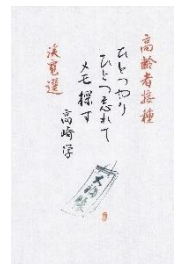 高齢者接種
ひとつやり
ひとつ忘れて
メモ探す
高崎学
渓寛選